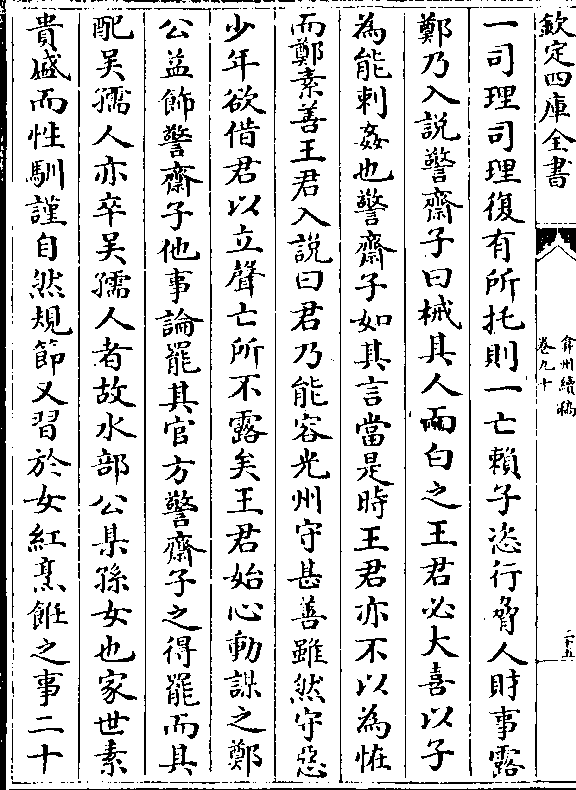 欽定四庫全書
弇州續稿
卷九十
二十五
一司理司理復有所托則一亡賴子恣行脅人財事露
鄭乃入説警齋子曰械其人而白之王君必大喜以子
為能刺姦也警齋子如其言當是時王君亦不以為恠
而鄭素善王君入説曰君乃能容光州守甚善雖然守惡
少年欲借君以立聲亡所不露矣王君始心動謀之鄭
公益飾警齋子他事論罷其官方警齋子之得罷而其
配吴孺人亦卒吴孺人者故水部公某孫女也家世素
貴戚而性馴謹自然規節又習於女紅烹飪之事二十